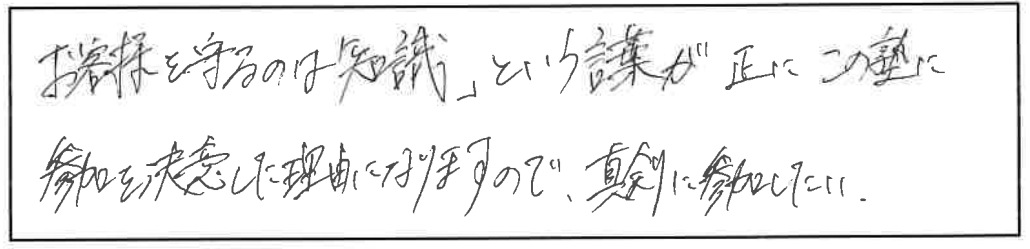 お客様を守るのは知識」という言葉が正にこの塾に
参加を決意した理由になりますので、真剣に参加したい.